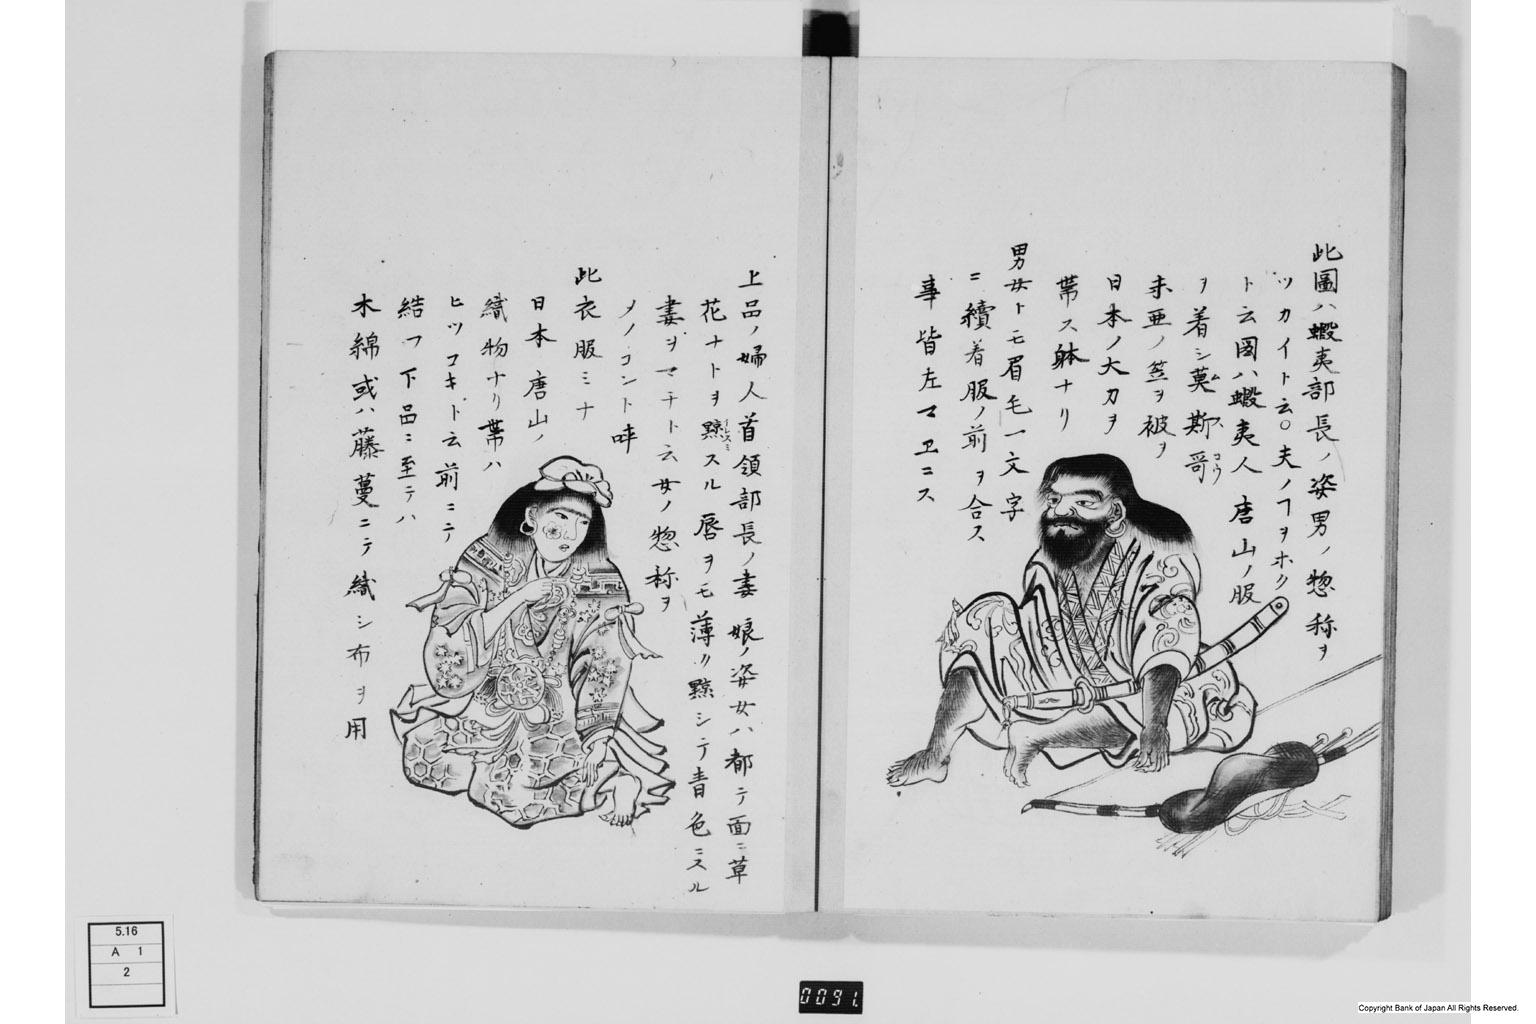 此圖ハ蝦夷部長ノ姿男ノ惣称ヲ
ツカイト云○夫ノヿヲホク
ト云図ハ蝦夷人唐山ノ服
ヲ着シ莫斯哥
ムスコウ
未亜ノ笠ヲ被ヲ
日本ノ大刀ヲ
帯ス躰ナリ
男女トモ眉毛一文字
ニ續着服ノ前ヲ合ス
事皆左マヱニス
上品ノ婦人首領部長ノ妻娘ノ姿女ハ都テ面ニ草
花ナトヲ黥スル唇ヲモ薄ク黥シテ青色ニスル
イレスミ
妻ヲマチト云女ノ惣称ヲ
メノコント呼
此衣服ミナ
日本唐山ノ
織物ナリ帯ハ
ヒツコキト云前ニテ
結フ下品ニ至テハ
木綿或ハ藤蔓ニテ織シ布ヲ用
5.16
A 1
2
0091.
Copyright Bank of Japan All Rights Reserved.